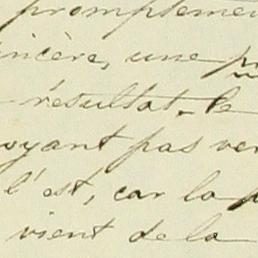 promptement
sincère, une
résultat. Le
voyant pas ver
l'est, car la p
vient de la